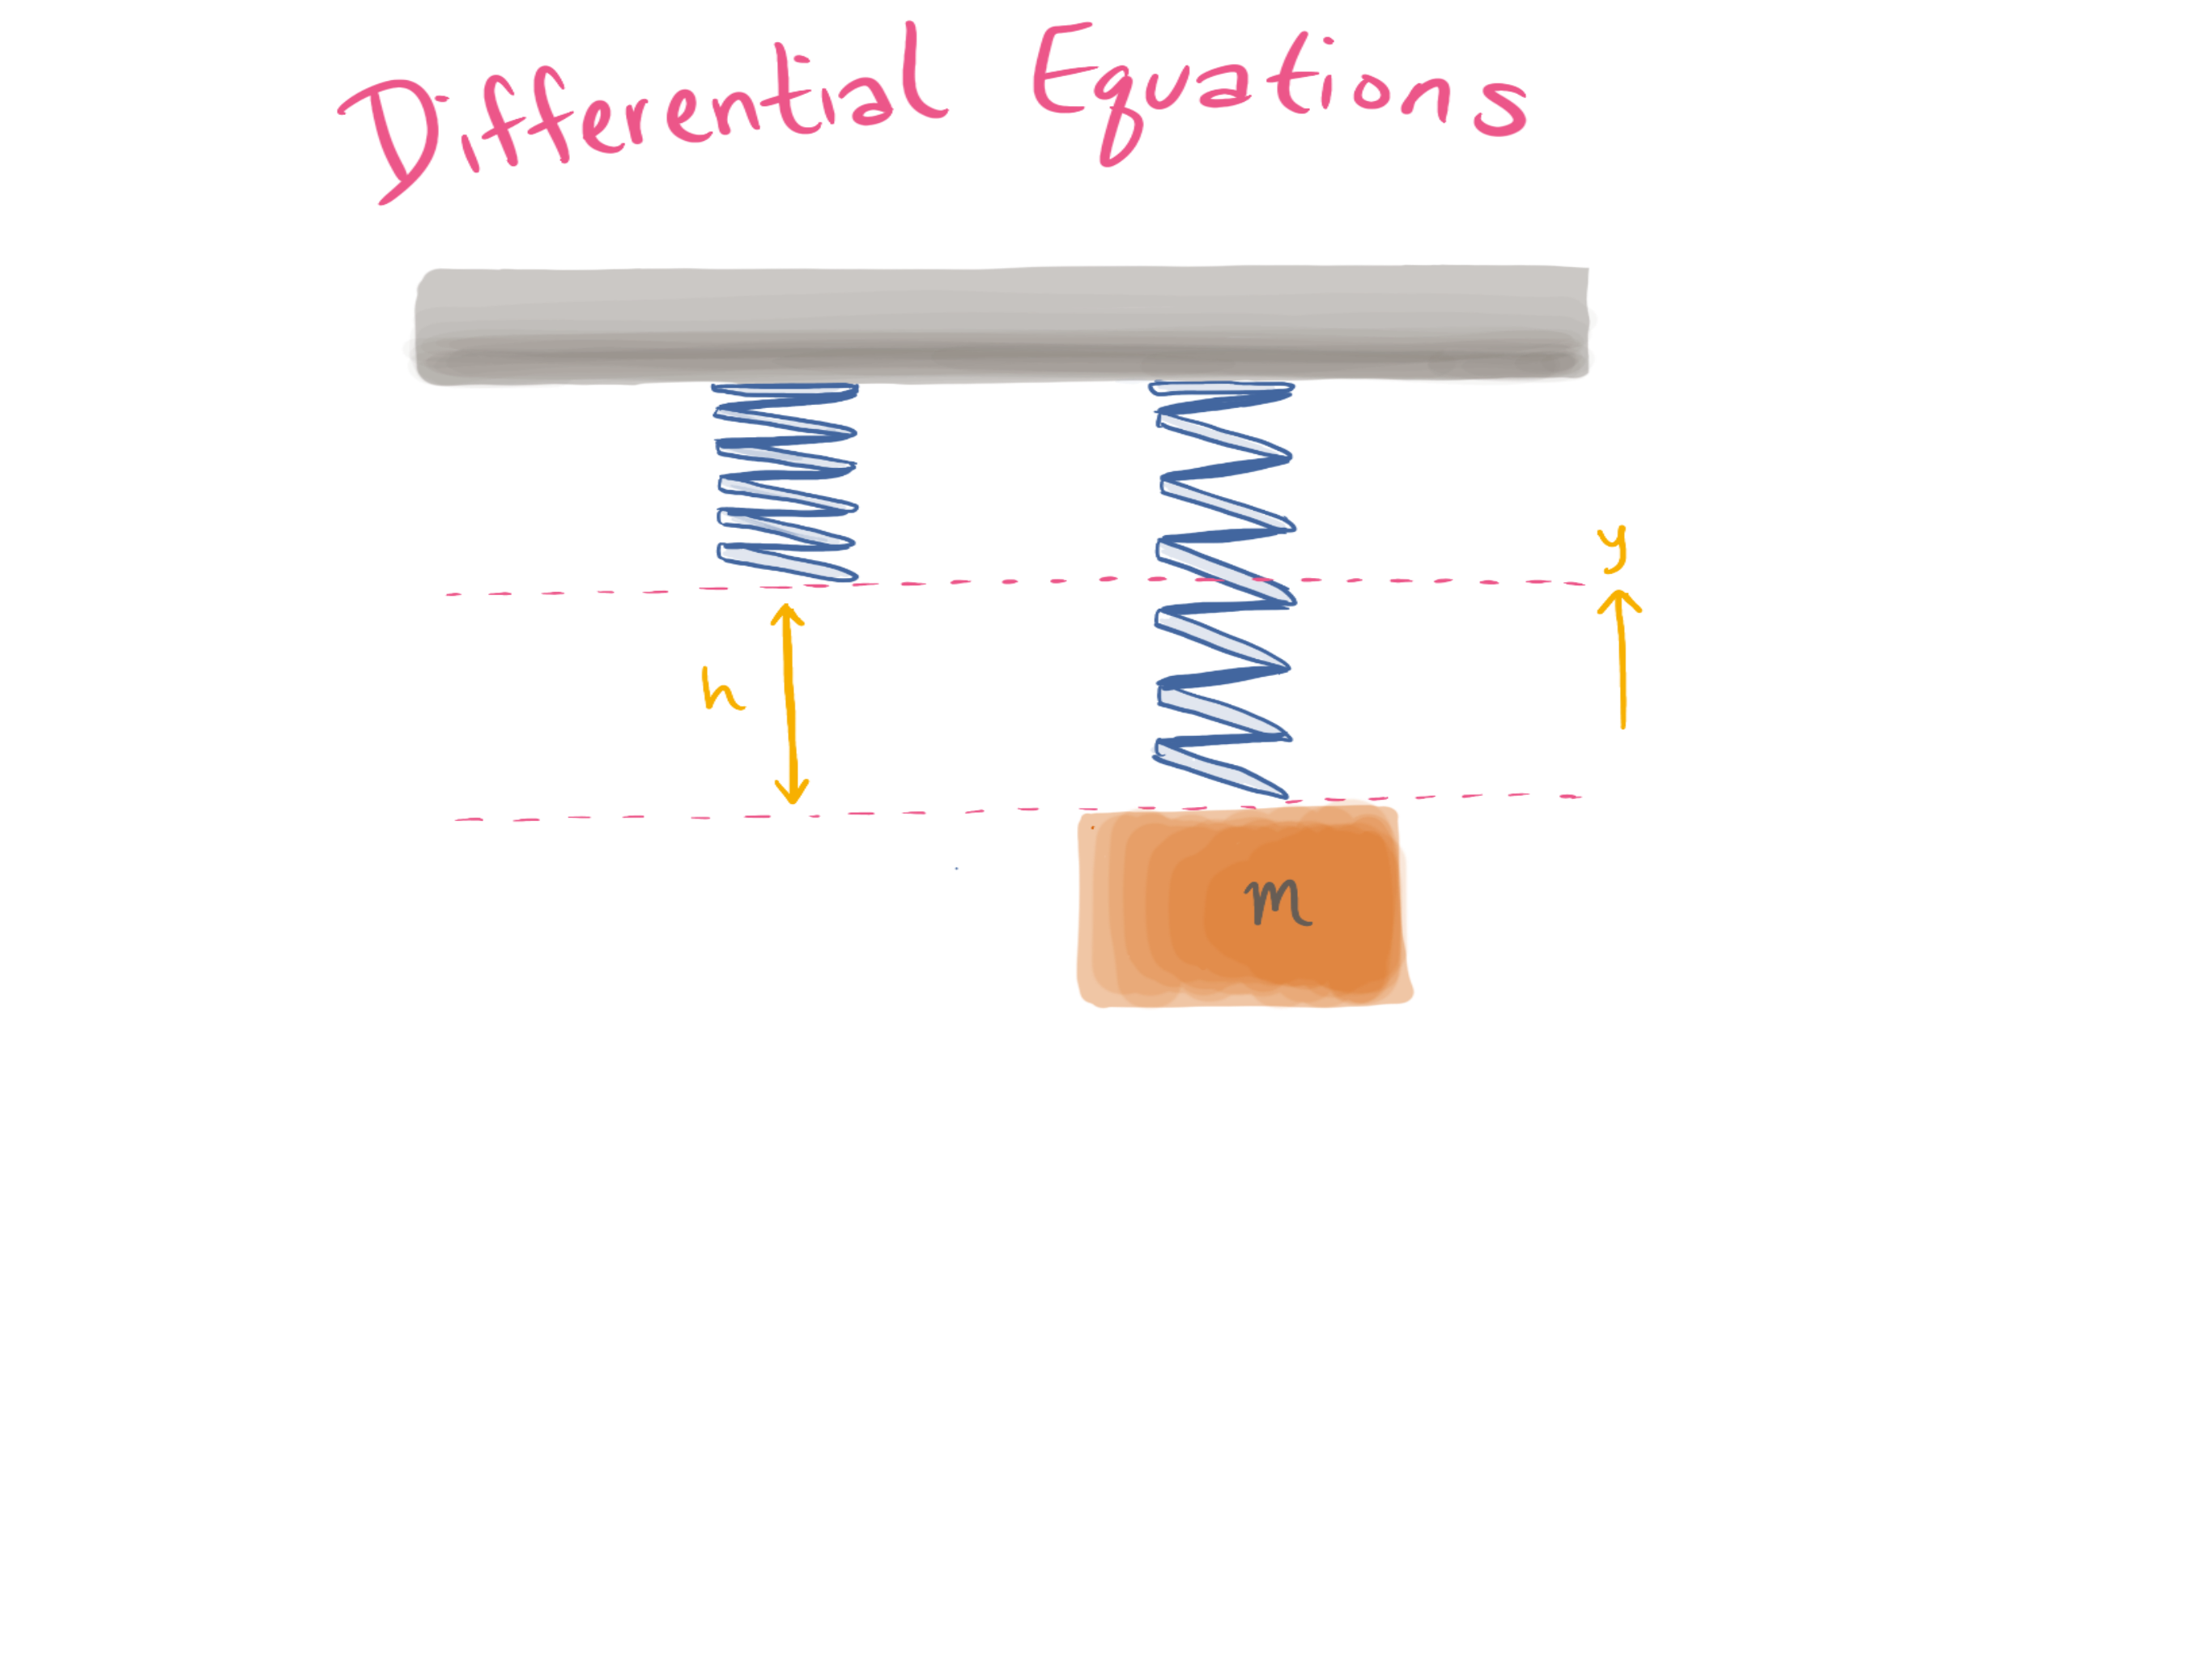 Differential Equations
y
h
m